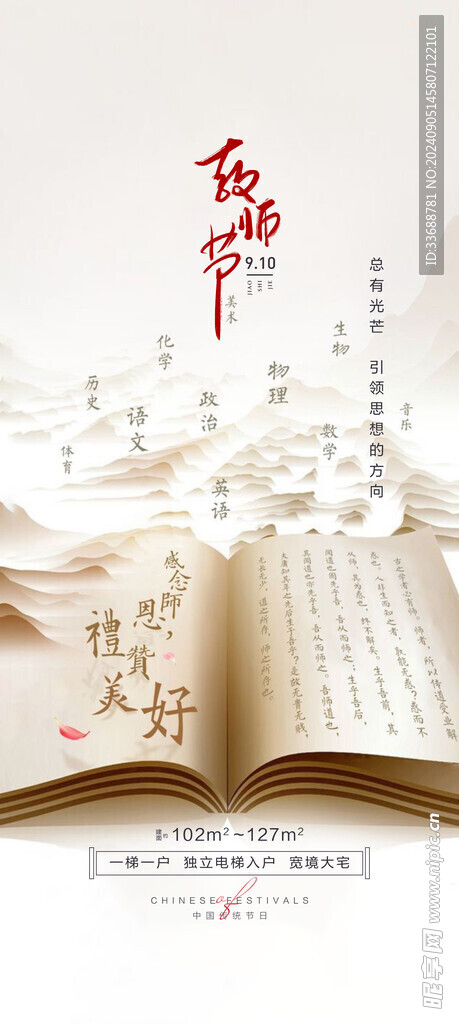 ID:33688781 NO:20240905145807122101
教师节
9.10
总有光芒 引领思想的方向
美术
生物
化学
物理
历史
政治
音乐
语文
数学
体育
英语
感念師恩，
禮贊美好
古之学者必有师。师者，所以传道受业解
惑也。人非生而知之者，孰能无惑？惑而不
从师，其为惑也，终不解矣。生乎吾前，其
闻道也固先乎吾，吾从而师之；生乎吾后，
其闻道也亦先乎吾，吾从而师之。吾师道也，
夫庸知其年之先后生于吾乎？是故无贵无贱，
无长无少，道之所存，师之所存也。
建面约 102m²~127m²
一梯一户 独立电梯入户 宽境大宅
CHINESE of FESTIVALS
中国传统节日
昵享网 www.nipic.cn